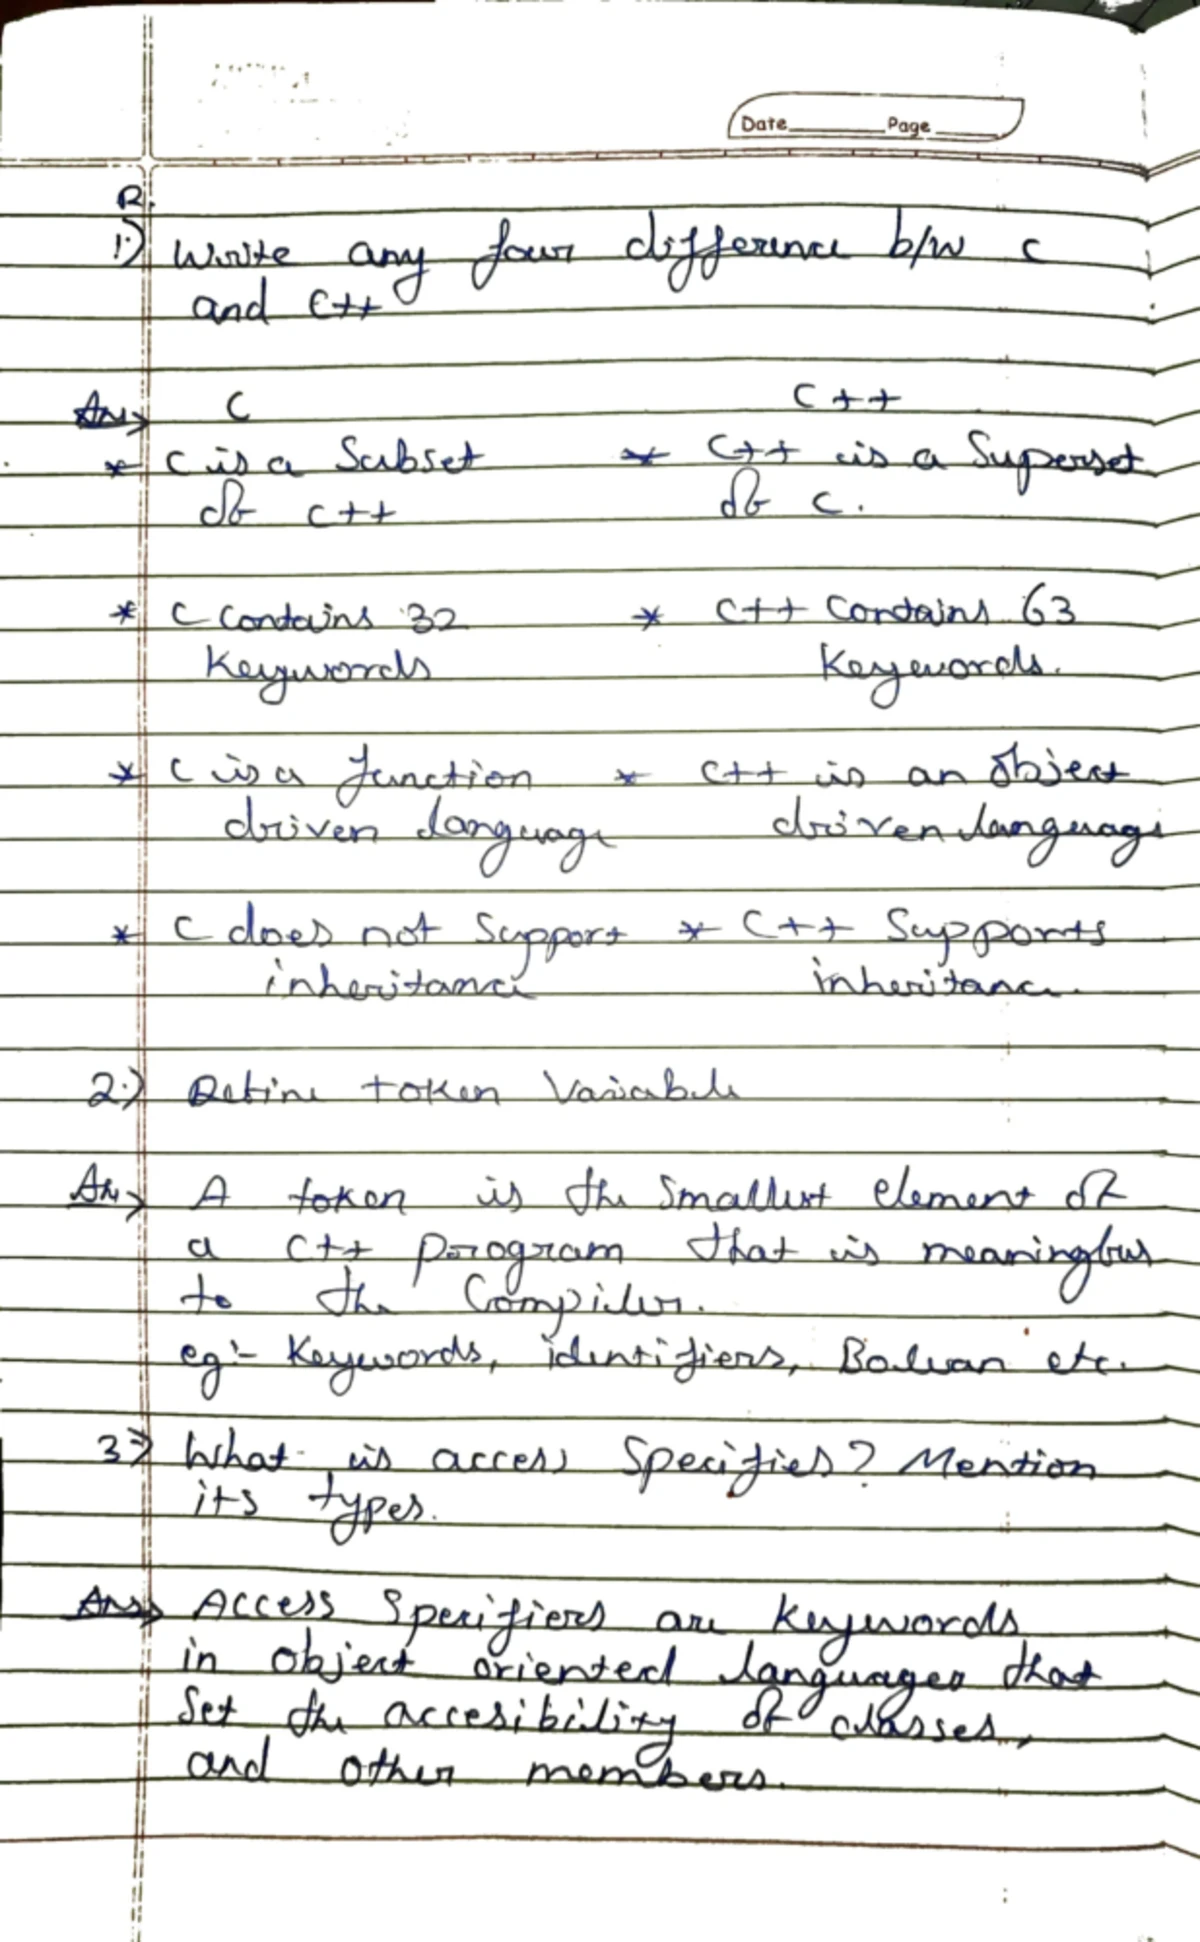 Date Page
R.
1.) Write any four difference b/w c
and C++
Ans> C C++
* C is a Subset * C++ is a Superset
of c++ of c.
* C Contains 32 * C++ Contains 63
Keywords Keywords.
* C is a function * C++ is an object
driven language driven language
* C does not Support * C++ Supports
inheritance inheritance.
2.) Define token Variable
Ans> A token is the Smallest element of
a C++ program that is meaningful
to the Compiler.
eg:- Keywords, identifiers, Boolean etc.
3.) What is access Specifies? Mention
its types.
Ans> Access Specifiers are Keywords
in object oriented languages that
Set the accesibility of classes,
and other members.